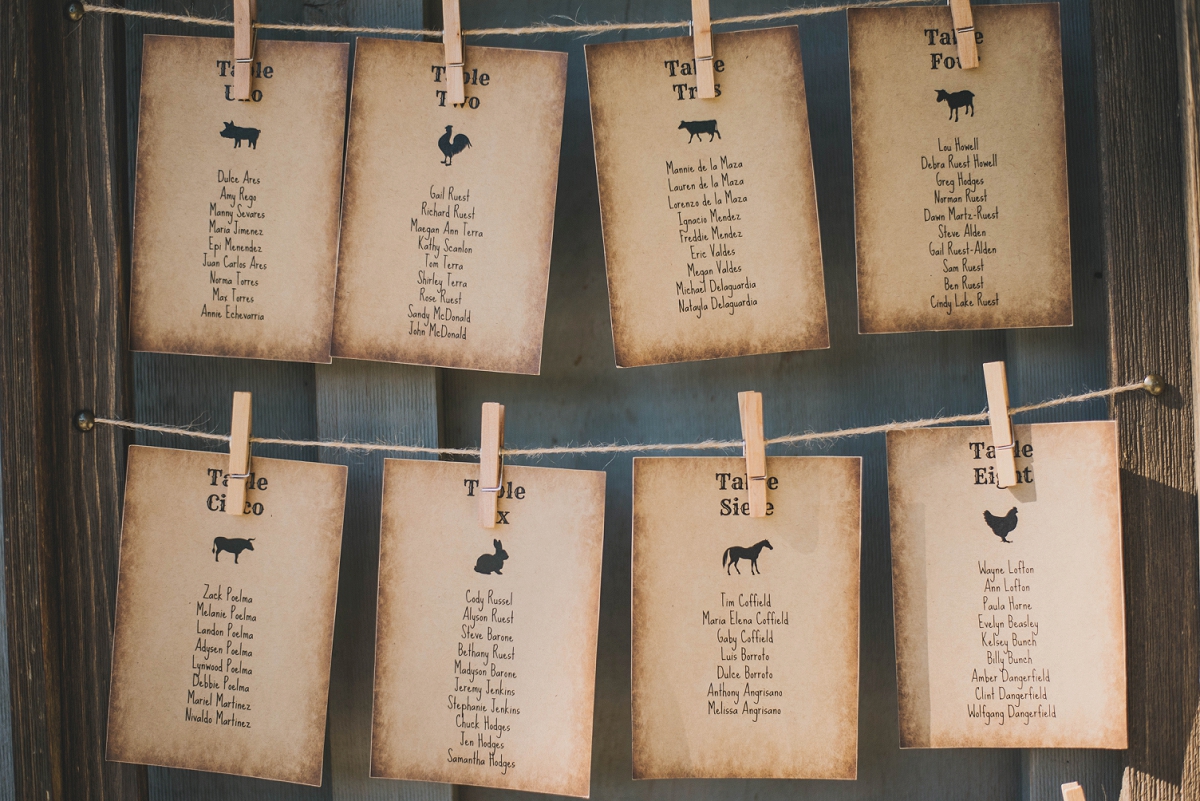 Table
Uno
Dulce Ares
Amy Rego
Manny Sevares
Maria Jimenez
Epi Menendez
Juan Carlos Ares
Norma Torres
Max Torres
Annie Echevarria
Table
Two
Gail Ruest
Richard Ruest
Maegan Ann Terra
Kathy Scanlon
Tom Terra
Shirley Terra
Rose Ruest
Sandy McDonald
John McDonald
Table
Tres
Mannie de la Maza
Lauren de la Maza
Lorenzo de la Maza
Ignacio Mendez
Freddie Mendez
Eric Valdes
Megan Valdes
Michael Delaguardia
Natayla Delaguardia
Table
Four
Lou Howell
Debra Ruest Howell
Greg Hodges
Norman Ruest
Dawn Martz-Ruest
Steve Alden
Gail Ruest-Alden
Sam Ruest
Ben Ruest
Cindy Lake Ruest
Table
Cinco
Zack Poelma
Melanie Poelma
Landon Poelma
Adysen Poelma
Lynwood Poelma
Debbie Poelma
Mariel Martinez
Nivaldo Martinez
Table
Six
Cody Russel
Alyson Ruest
Steve Barone
Bethany Ruest
Madyson Barone
Jeremy Jenkins
Stephanie Jenkins
Chuck Hodges
Jen Hodges
Samantha Hodges
Table
Siete
Tim Coffield
Maria Elena Coffield
Gaby Coffield
Luis Borroto
Dulce Borroto
Anthony Angrisano
Melissa Angrisano
Table
Eight
Wayne Lofton
Ann Lofton
Paula Horne
Evelyn Beasley
Kelsey Bunch
Billy Bunch
Amber Dangerfield
Clint Dangerfield
Wolfgang Dangerfield